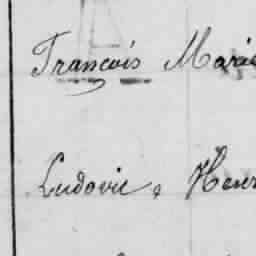 François Marie
Ludovic, Henri